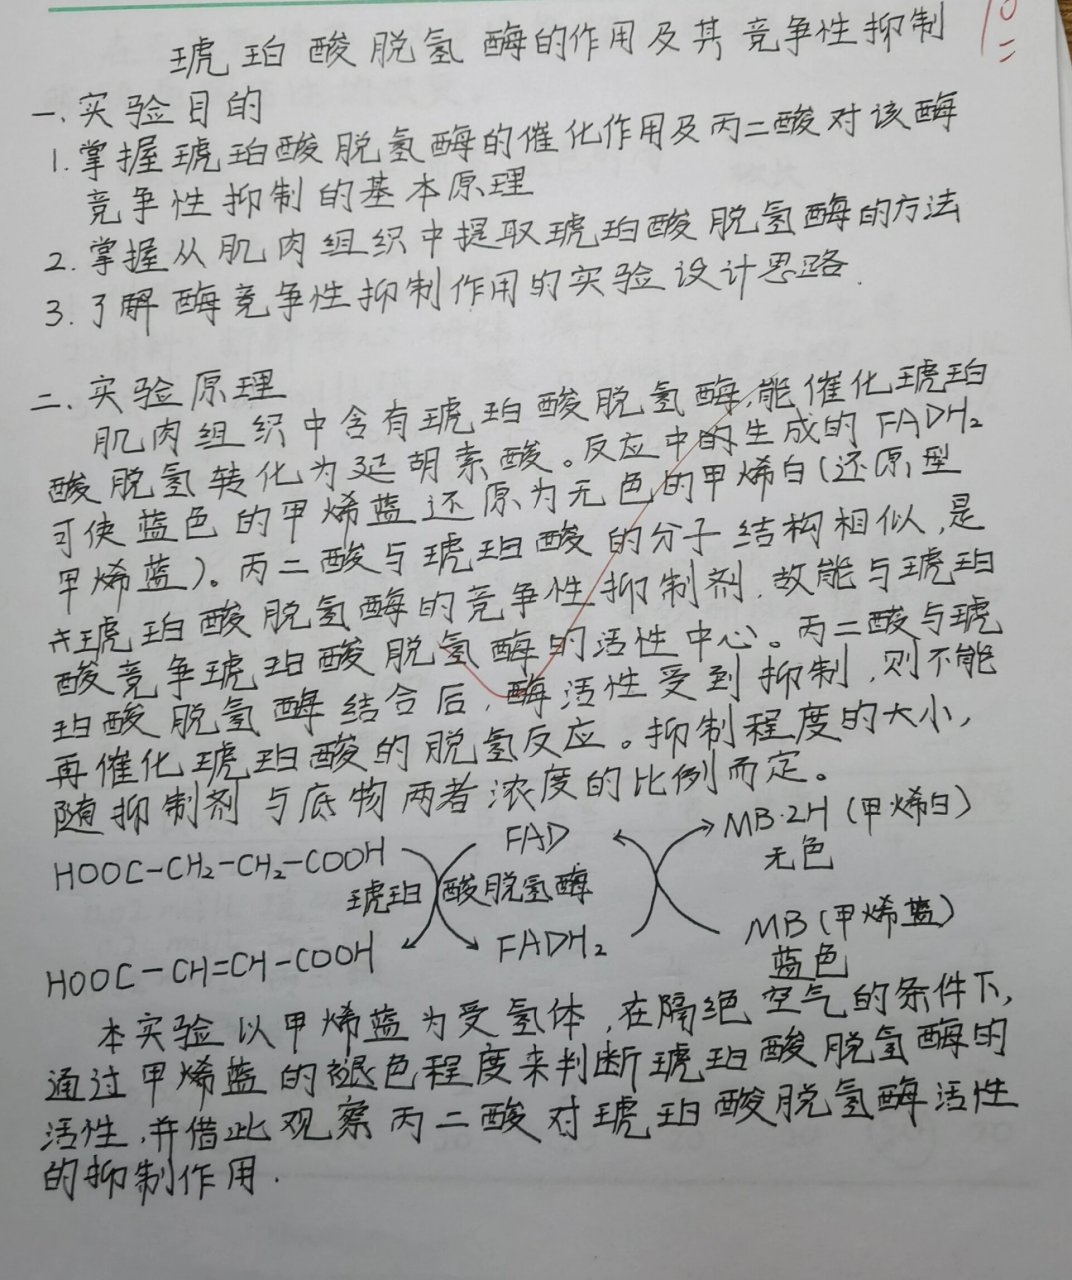 琥珀酸脱氢酶的作用及其竞争性抑制
一.实验目的
1.掌握琥珀酸脱氢酶的催化作用及丙二酸对该酶
竞争性抑制的基本原理
2.掌握从肌肉组织中提取琥珀酸脱氢酶的方法
3.了解酶竞争性抑制作用的实验设计思路.
二.实验原理
肌肉组织中含有琥珀酸脱氢酶,能催化琥珀
酸脱氢转化为延胡索酸。反应中的生成的FADH₂
可使蓝色的甲烯蓝还原为无色的甲烯白(还原型
甲烯蓝)。丙二酸与琥珀酸的分子结构相似,是
琥珀酸脱氢酶的竞争性抑制剂.故能与琥珀
酸竞争琥珀酸脱氢酶的活性中心。丙二酸与琥
珀酸脱氢酶结合后,酶活性受到抑制,则不能
再催化琥珀酸的脱氢反应。抑制程度的大小,
随抑制剂与底物两者浓度的比例而定。
HOOC-CH₂-CH₂-COOH FAD MB·2H(甲烯白)
无色
琥珀酸脱氢酶
HOOC-CH=CH-COOH FADH₂ MB(甲烯蓝)
蓝色
本实验以甲烯蓝为受氢体,在隔绝空气的条件下,
通过甲烯蓝的褪色程度来判断琥珀酸脱氢酶的
活性,并借此观察丙二酸对琥珀酸脱氢酶活性
的抑制作用.